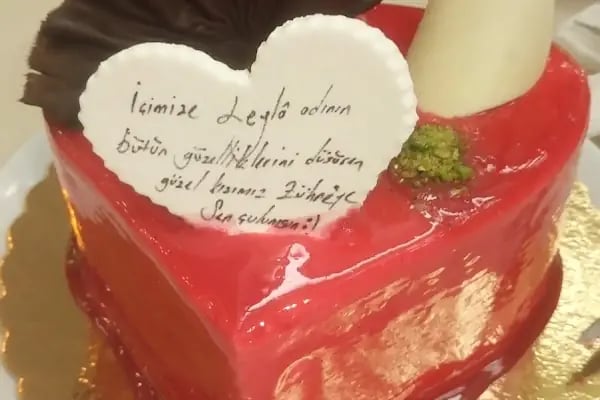 İçimize Leylâ adının
bütün güzelliklerini düşüren
güzel kızımız Zühre'ye
Sen gülümsün :)